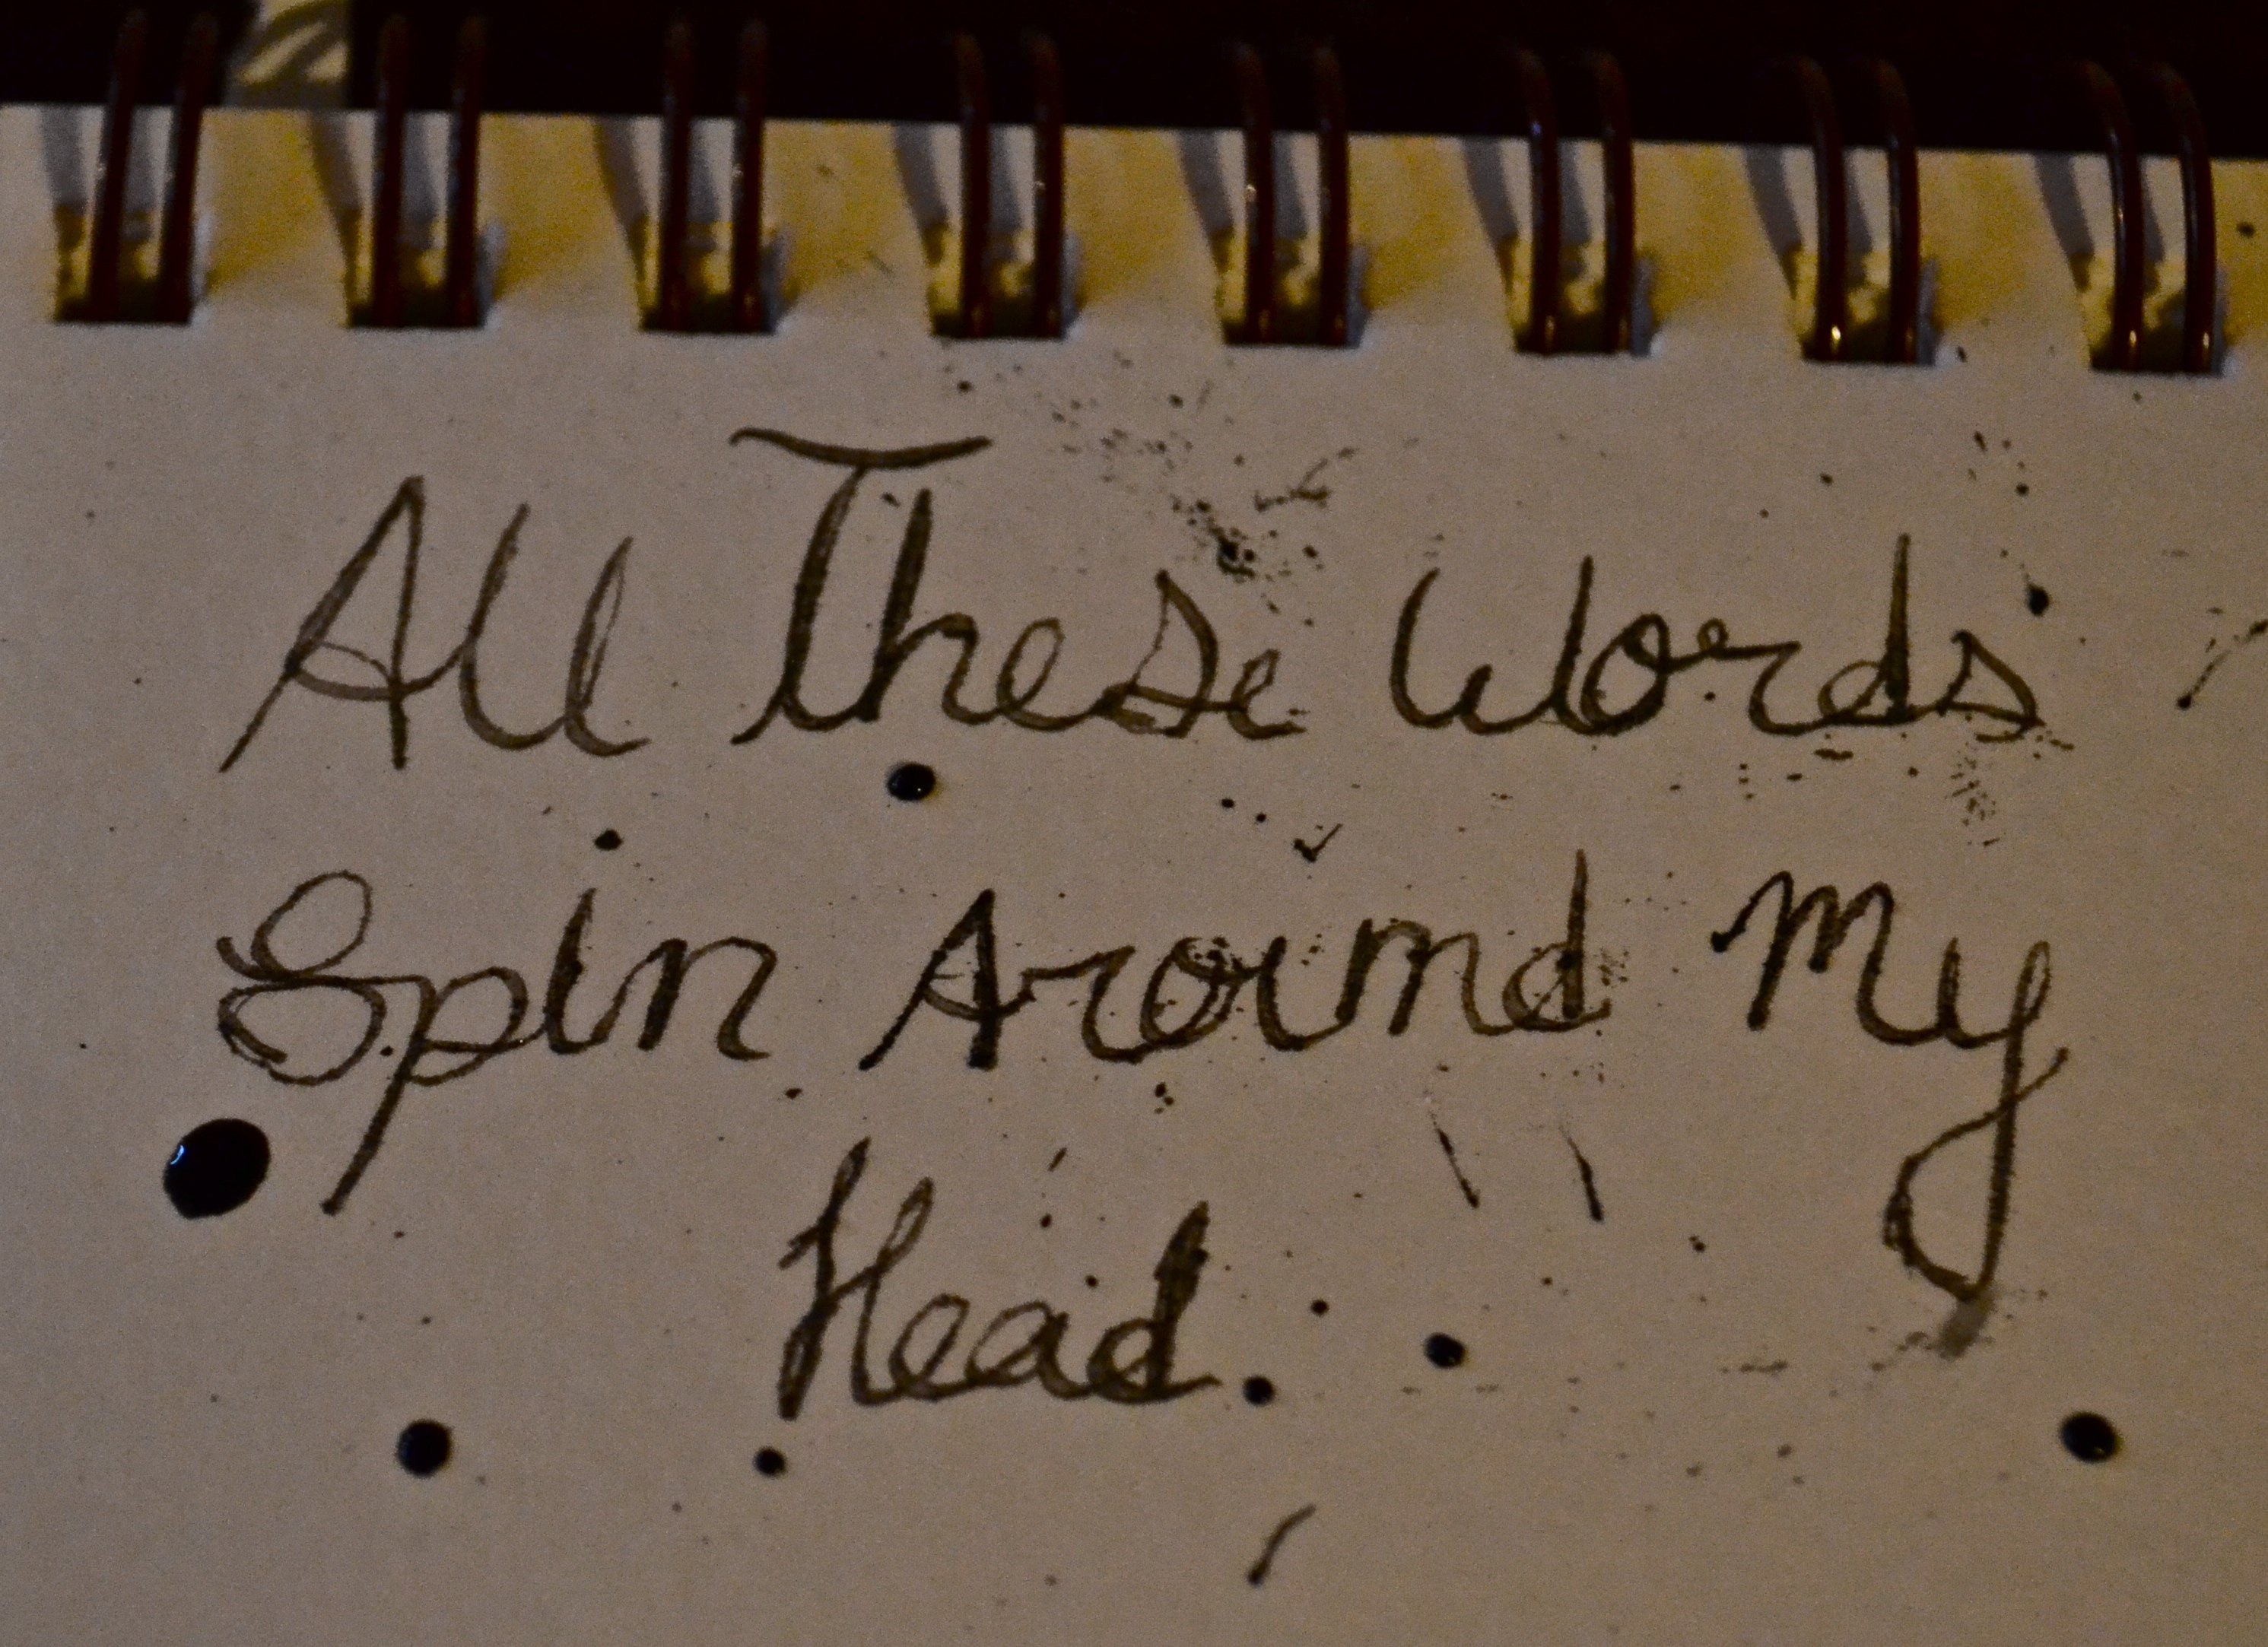 All These Words
Spin Around My
Head.